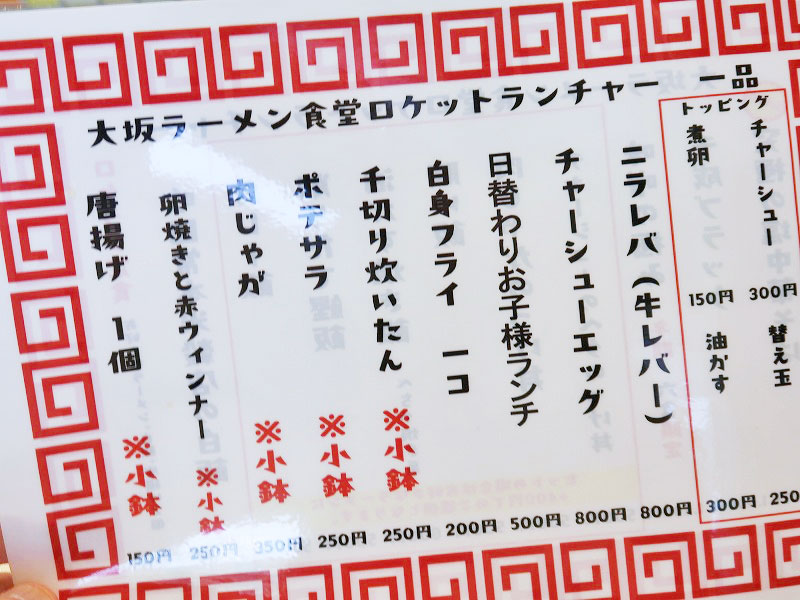 大坂ラーメン食堂ロケットランチャー 一品
トッピング
チャーシュー 300円
替え玉 250
煮卵 150円
油かす 300円
ニラレバ(牛レバー) 800円
チャーシューエッグ 800円
日替わりお子様ランチ 500円
白身フライ 一コ 200円
千切り炊いたん ※小鉢 250円
ポテサラ ※小鉢 250円
肉じゃが ※小鉢 350円
卵焼きと赤ウィンナー ※小鉢 250円
唐揚げ 1個 ※小鉢 150円